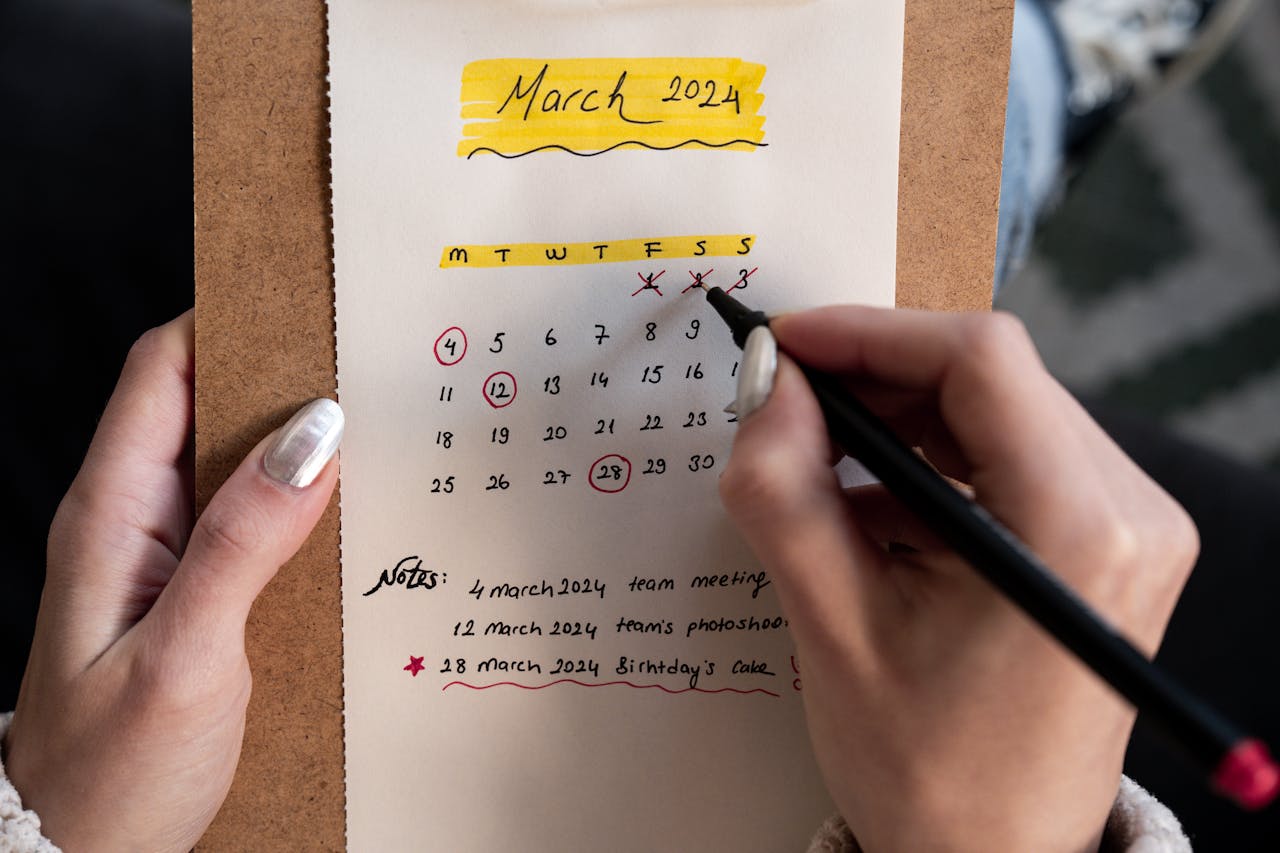 March 2024
M T W T F S S
1 2 3
4 5 6 7 8 9
11 12 13 14 15 16
18 19 20 21 22 23
25 26 27 28 29 30
Notes: 4 march 2024 team meeting
12 March 2024 team's photoshoo
28 march 2024 Birhtday's cake